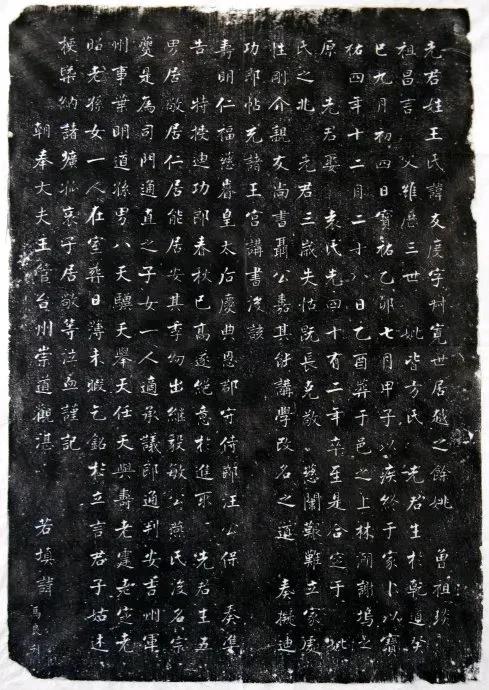 先君姓王氏諱友度字叔寬世居越之餘姚 曾祖
祖昌言 父維歷三世 妣皆方氏 先君生於乾道癸
巳九月初四日寶祐乙卯七月甲子以疾終于家卜以寶
祐四年十二月二十八日乙酉葬于邑之上林湖謝塢之
原 先君娶 袁氏先四十有二年卒至是合窆于 妣
氏之北 先君三歲失怙既長克敬 慈闈艱難立家處
性剛介親友尚書聶公嘉其能講學改名之道 奏擬迪
功郎帖充諸王宮講書後該
壽明仁福慈睿皇太后慶典恩郡守侍郎汪公保 奏隻
告 特授迪功郎春秋已高遂絕意於進取 先君生五
男居敬居仁居能居安其季幼出繼毅敏公燕氏沒名宗
夔是為司門通直之子女一人適承議郎通判安吉州軍
州事葉明道孫男八天驥天舉天任天興壽老 老定老
昭老孫女一人在室葬日薄未暇乞銘於立言君子姑述
梗槩納諸壙 哀子居敬等泣血謹記
朝奉大夫主管台州崇道觀湛 若填諱 馬良刊